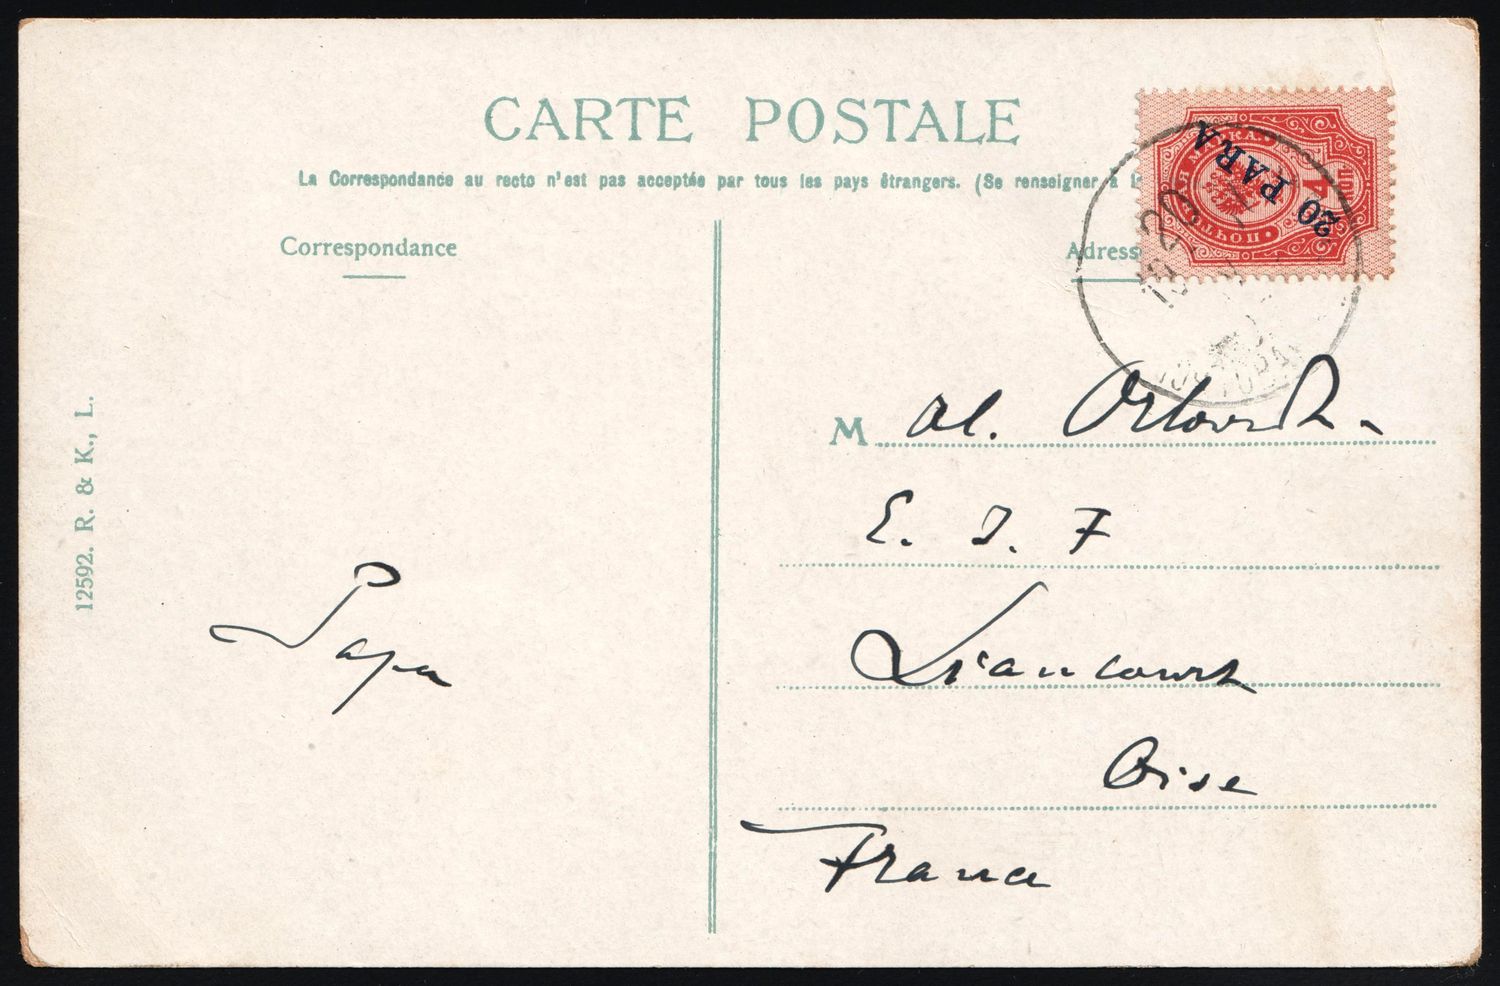 CARTE POSTALE
La Correspondance au recto n'est pas acceptée par tous les pays étrangers. (Se renseigner à
Correspondance
Adresse
20 PARA
МАРКА.
4
КОП
20
M Al.
E. I. F
Liancourt
Oise
France
Papa
12592. R. & K., L.